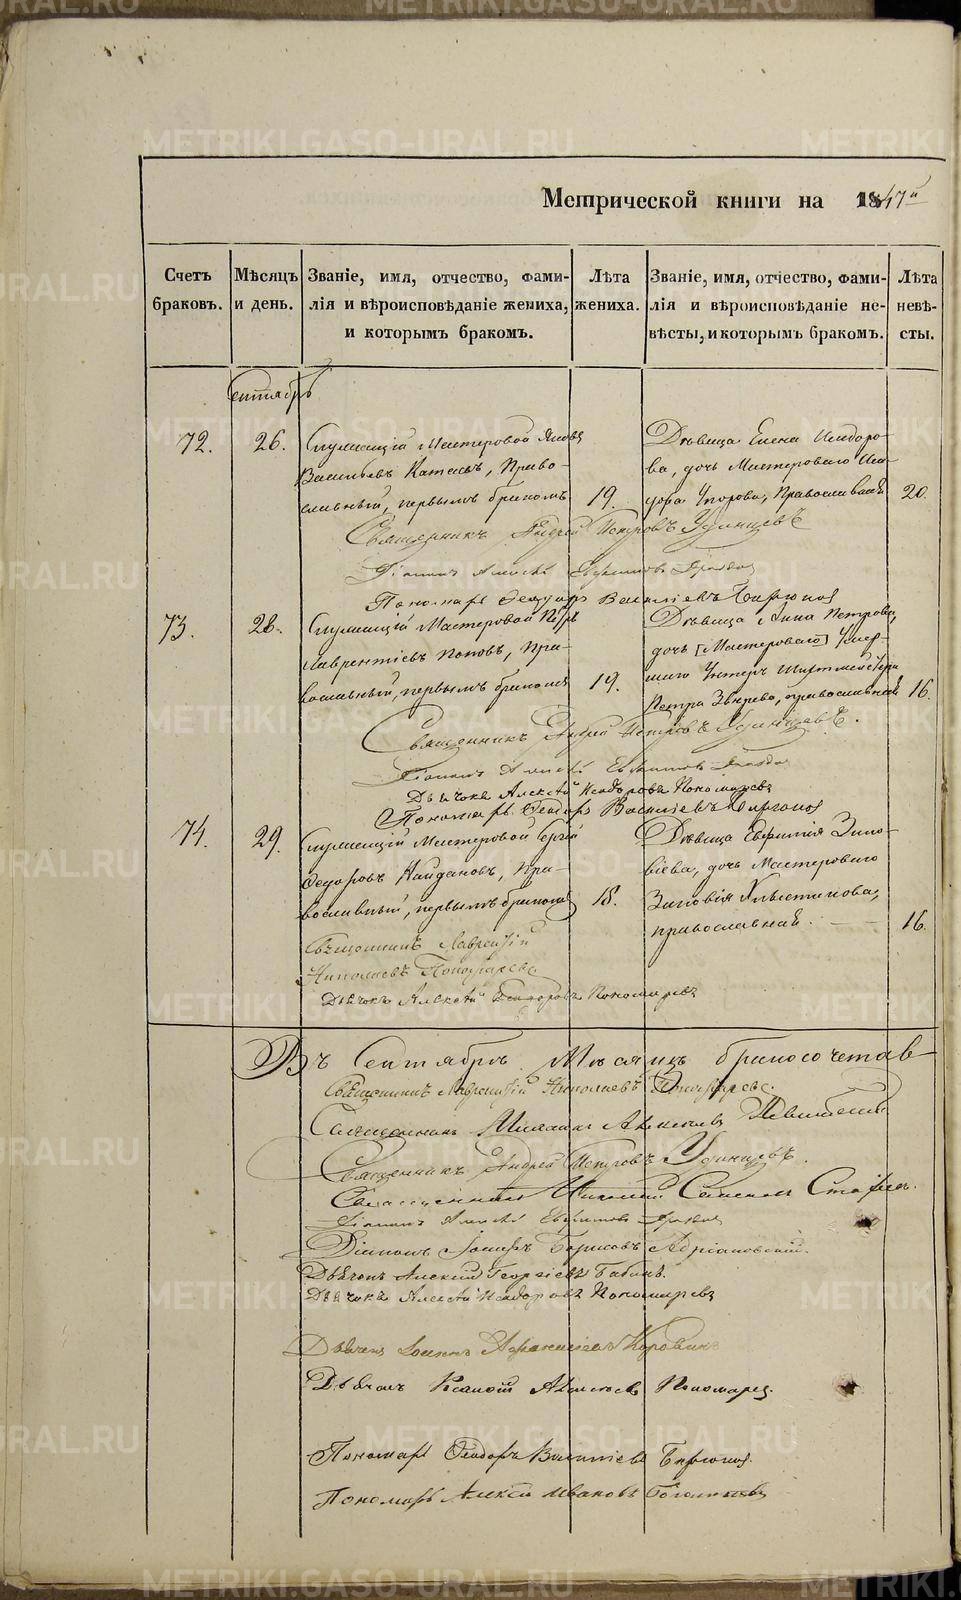 METRIKI.GASO-URAL.RU
Метрической книги на 1847й
Счетъ браковъ.
Мѣсяцъ и день.
Званіе, имя, отчество, фами-
лія и вѣроисповѣданіе жениха,
и которымъ бракомъ.
Лѣта жениха.
Званіе, имя, отчество, фами-
лія и вѣроисповѣданіе не-
вѣсты, и которымъ бракомъ.
Лѣта невѣ-
сты.
Сентябрь
72.
26.
Служащій Мастеровой Яковъ
Васильевъ Катаевъ, Право-
славный, первымъ бракомъ
19.
Дѣвица Елена Исидоро-
ва, дочь Мастероваго Иси-
дора Упорова, Православная
20.
Священникъ Андрей Петровъ Удинцевъ
Діаконъ Алексѣй Евфимовъ
Пономарь Ѳеодоръ Васильевъ Бирюков
73.
28.
Служащій Мастеровой Петръ
Лаврентіевъ Поповъ, Пра-
вославный, первымъ бракомъ
19.
Дѣвица Анна Петрова,
дочь [Мастероваго] Умер-
шаго Унтеръ Шихтмейстера
Петра Звѣрева, православная
16.
Священникъ Андрей Петровъ Удинцевъ.
Діаконъ Алексѣй Евфимовъ
Дьячокъ Алексѣй Исидоровъ Пономаревъ
Пономарь Ѳеодоръ Васильевъ Бирюков
74.
29.
Служащій Мастеровой Сергій
Ѳедоровъ Найдановъ, Пра-
вославный, первымъ бракомъ
18.
Дѣвица Евфимія Зино-
віева, дочь Мастероваго
Зиновія Хлыстикова,
православная.
16.
Священникъ Лаврентій
Николаевъ Пономаревъ
Дьячокъ Алексѣй Исидоровъ Пономаревъ
Въ Сентябрѣ Мѣсяцѣ бракосочетав-
Священникъ Лаврентій Николаевъ Пономаревъ.
Священникъ Михаилъ Алексѣевъ
Священникъ Андрей Петровъ Удинцевъ.
Священникъ Николай Симеоновъ
Діаконъ Алексѣй Евфимовъ
Діаконъ Іосифъ Борисовъ Адріановскій.
Дьячокъ Алексѣй Георгіевъ Бабинъ.
Дьячокъ Алексѣй Исидоровъ Пономаревъ
Дьячекъ Іоаннъ Афанасьевъ Коровинъ
Дьячокъ Алексѣевъ Пономаревъ.
Пономарь Ѳеодоръ Васильевъ Бирюков.
Пономарь Алексѣй Ивановъ